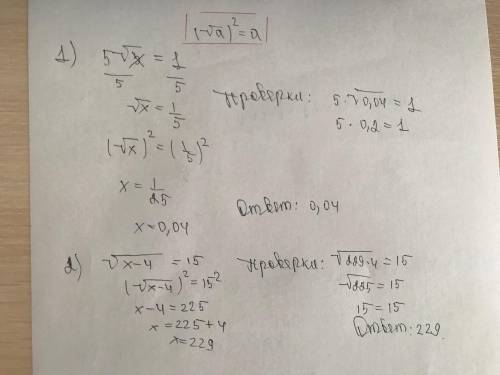 (√a)² = a
1) 5√x = 1
5 5
√x = 1/5
(√x)² = (1/5)²
x = 1/25
x = 0,04
Проверка: 5·√0,04 = 1
5 · 0,2 = 1
Ответ: 0,04
2) √x-4 = 15
(√x-4)² = 15²
x-4 = 225
x = 225+4
x = 229
Проверка: √229·4 = 15
√225 = 15
15 = 15
Ответ: 229